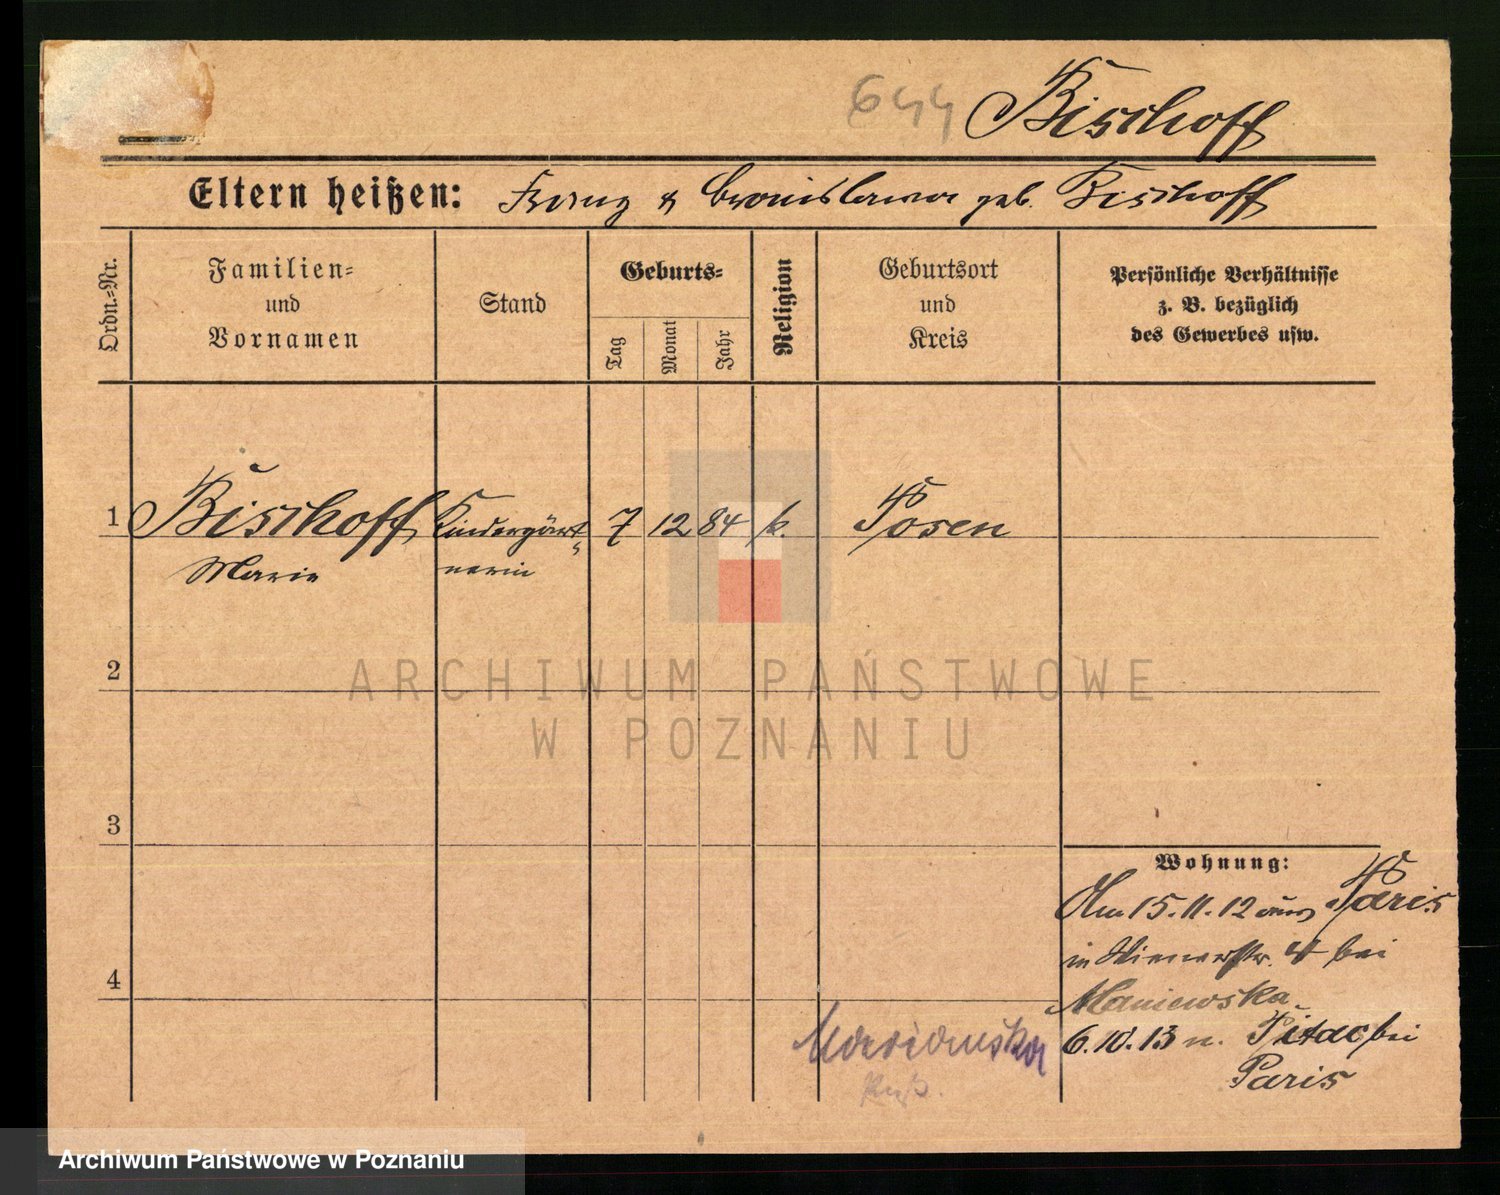 644 Bischoff
Eltern heißen: Franz & Bronislawa geb. Bischoff
Ordn.=Nr.
Familien=
und
Vornamen
Stand
Geburts=
Tag
Monat
Jahr
Religion
Geburtsort
und
Kreis
Persönliche Verhältnisse
z. B. bezüglich
des Gewerbes usw.
1 Bischoff Kindergärt 7 12 84 k. Posen
Marie nerin
2
ARCHIWUM PAŃSTWOWE
W POZNANIU
3
Wohnung:
Am 15.11.12 aus Paris
in Wienerstr. 4 bei
Maniewska
4
6.10.13 n. Pitac bei
Paris
Archiwum Państwowe w Poznaniu